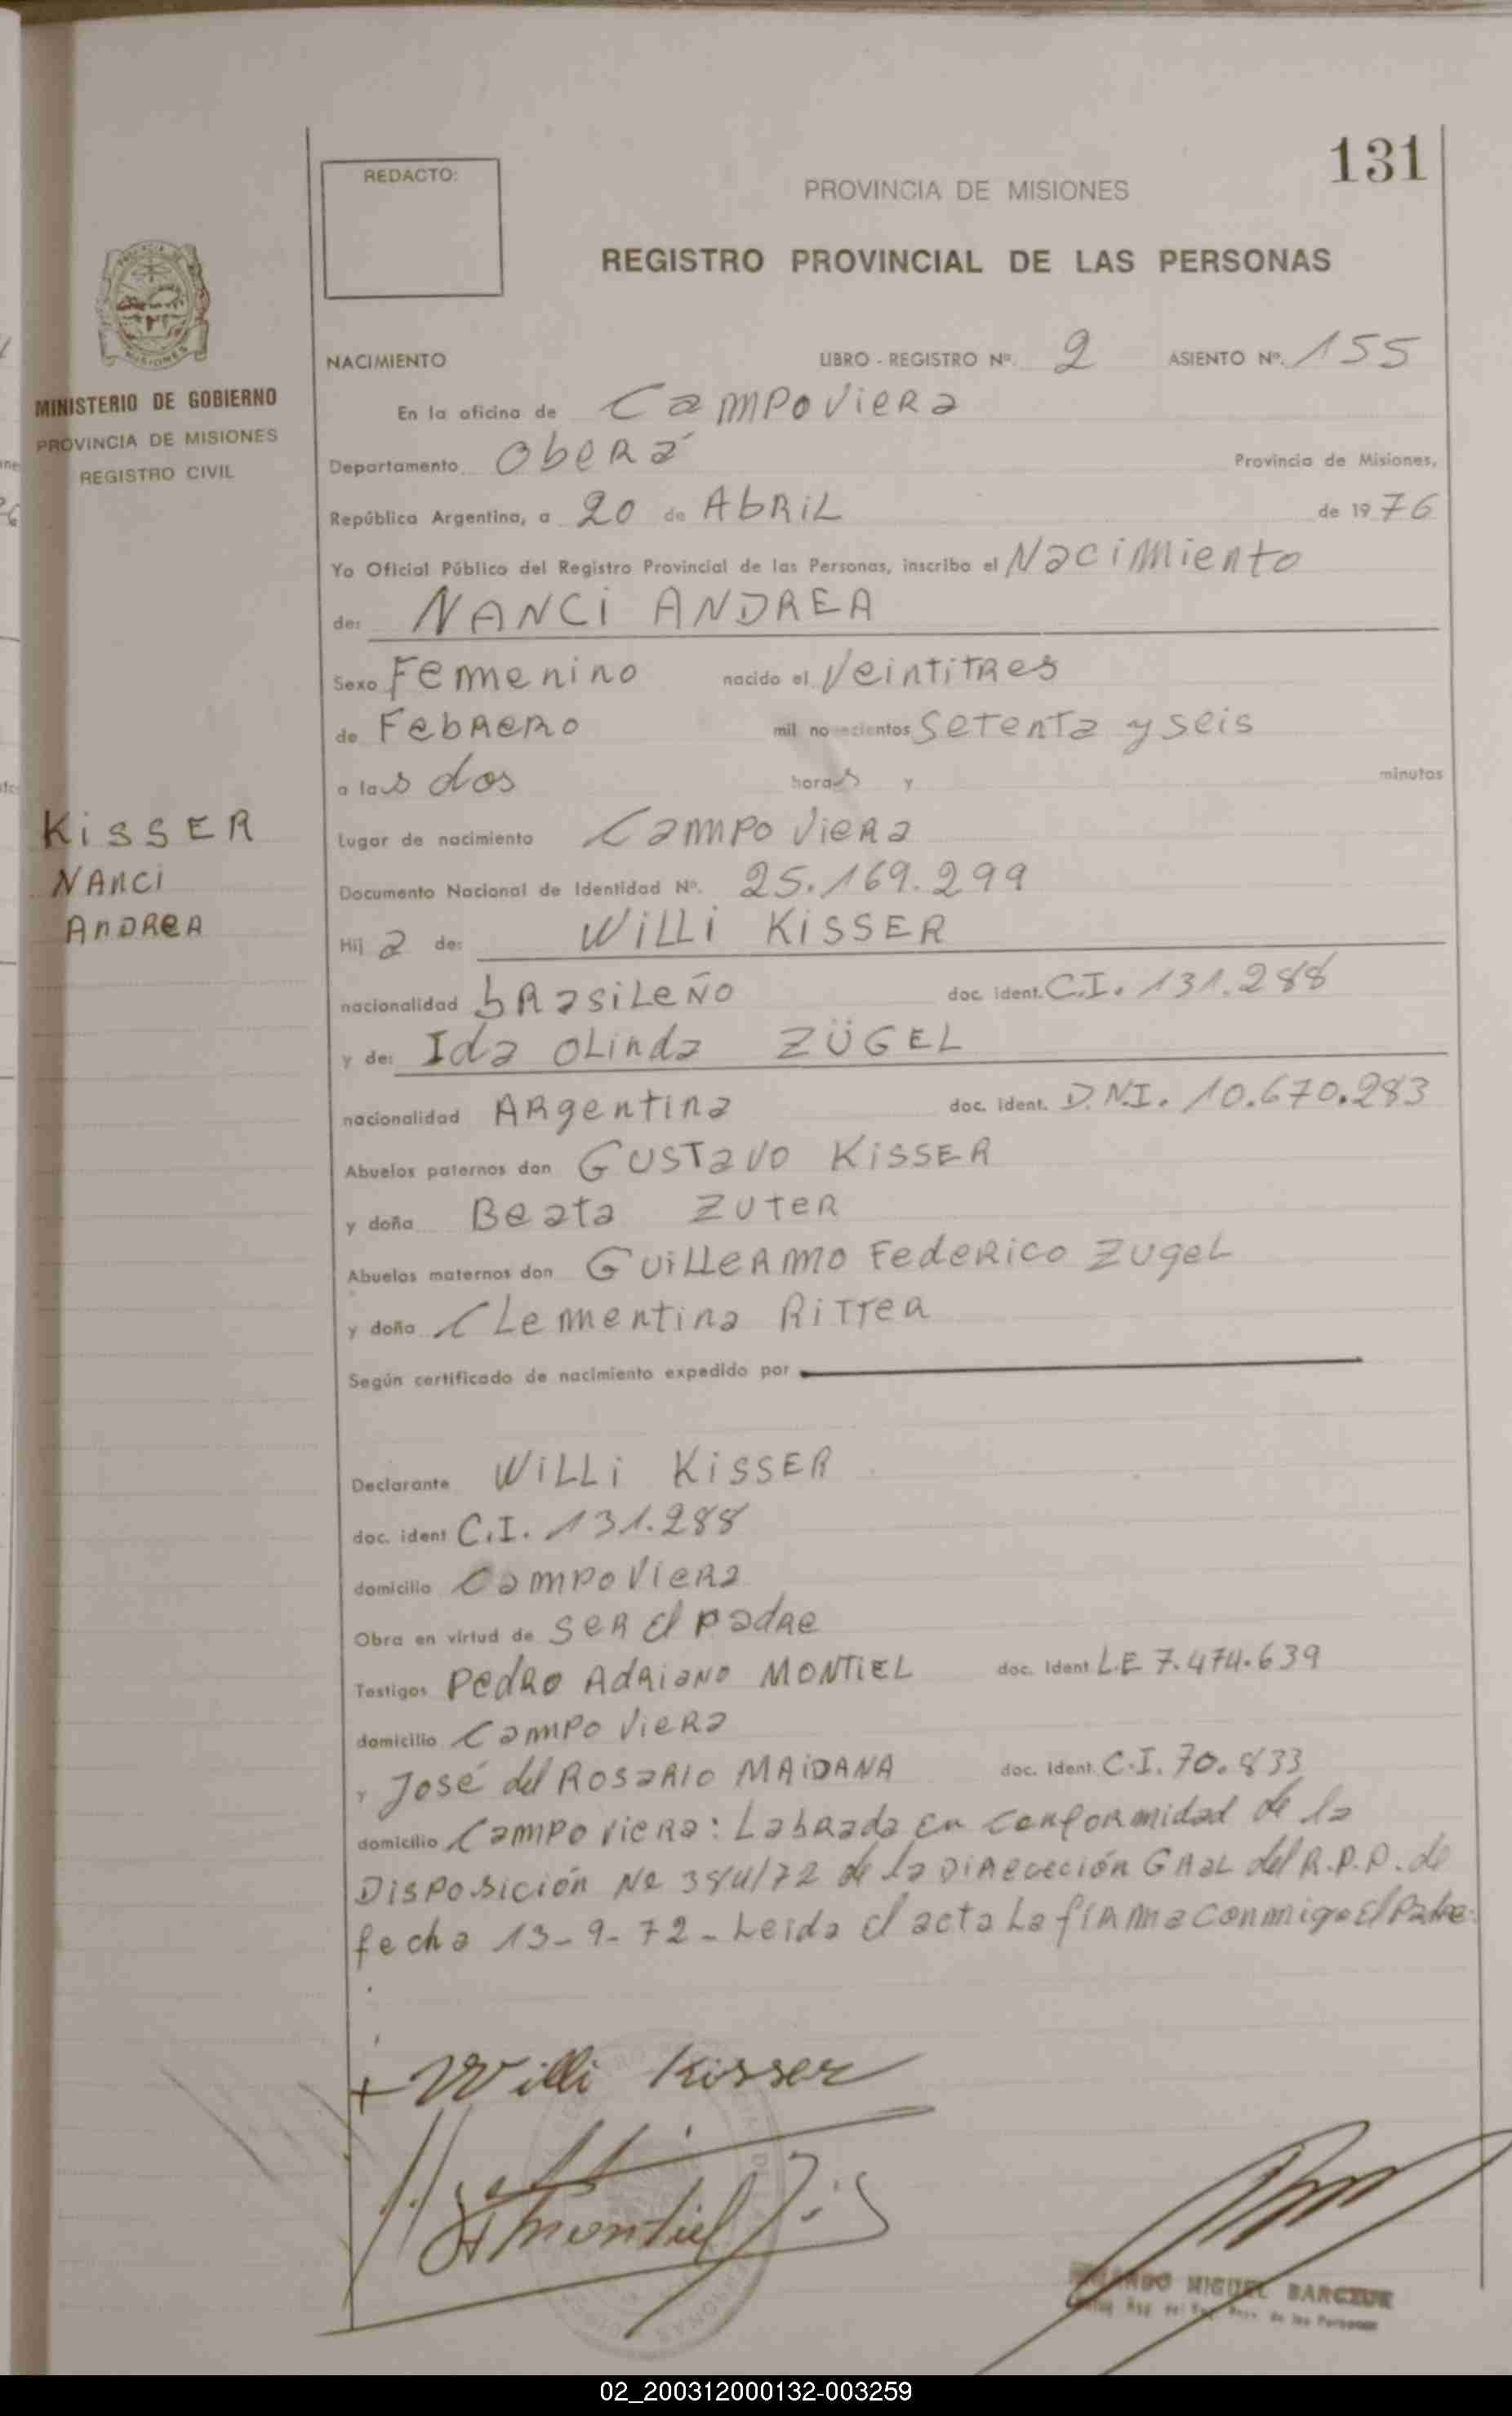 131
REDACTO:
PROVINCIA DE MISIONES
REGISTRO PROVINCIAL DE LAS PERSONAS
MISIONES
MINISTERIO DE GOBIERNO
PROVINCIA DE MISIONES
REGISTRO CIVIL
NACIMIENTO LIBRO - REGISTRO Nº. 2 ASIENTO Nº. 155
En la oficina de Campo Viera
Departamento Oberá Provincia de Misiones,
República Argentina, a 20 de Abril de 1976
Yo Oficial Público del Registro Provincial de las Personas, inscribo el Nacimiento
de: NANCI ANDREA
Sexo Femenino nacido el Veintitres
de Febrero mil novecientos Setenta y seis
a las dos horas y minutos
KISSER
NANCI
ANDREA
Lugar de nacimiento Campo Viera
Documento Nacional de Identidad Nº. 25.169.299
Hija de: WILLI KISSER
nacionalidad brasileño doc. ident. C.I. 131.288
y de: Ida Olinda ZÜGEL
nacionalidad Argentina doc. ident. D.N.I. 10.670.283
Abuelos paternos don Gustavo KISSER
y doña Beata ZUTER
Abuelos maternos don Guillermo Federico Zugel
y doña Clementina Ritter
Según certificado de nacimiento expedido por
Declarante WILLI KISSER
doc. ident C.I. 131.288
domicilio Campo Viera
Obra en virtud de ser el padre
Testigos Pedro Adriano MONTIEL doc. Ident L.E 7.474.639
domicilio Campo Viera
y José del Rosario MAIDANA doc. Ident. C.I. 70.833
domicilio Campo Viera: Labrada en conformidad de la
Disposición Nº de la Direcección Gral del R.P.P. de
fecha 13-9-72 - Leida el acta La firma conmigo El Padre.
+ Willi Kisser
Montiel
MIGUEL
de las Personas
02_200312000132-003259